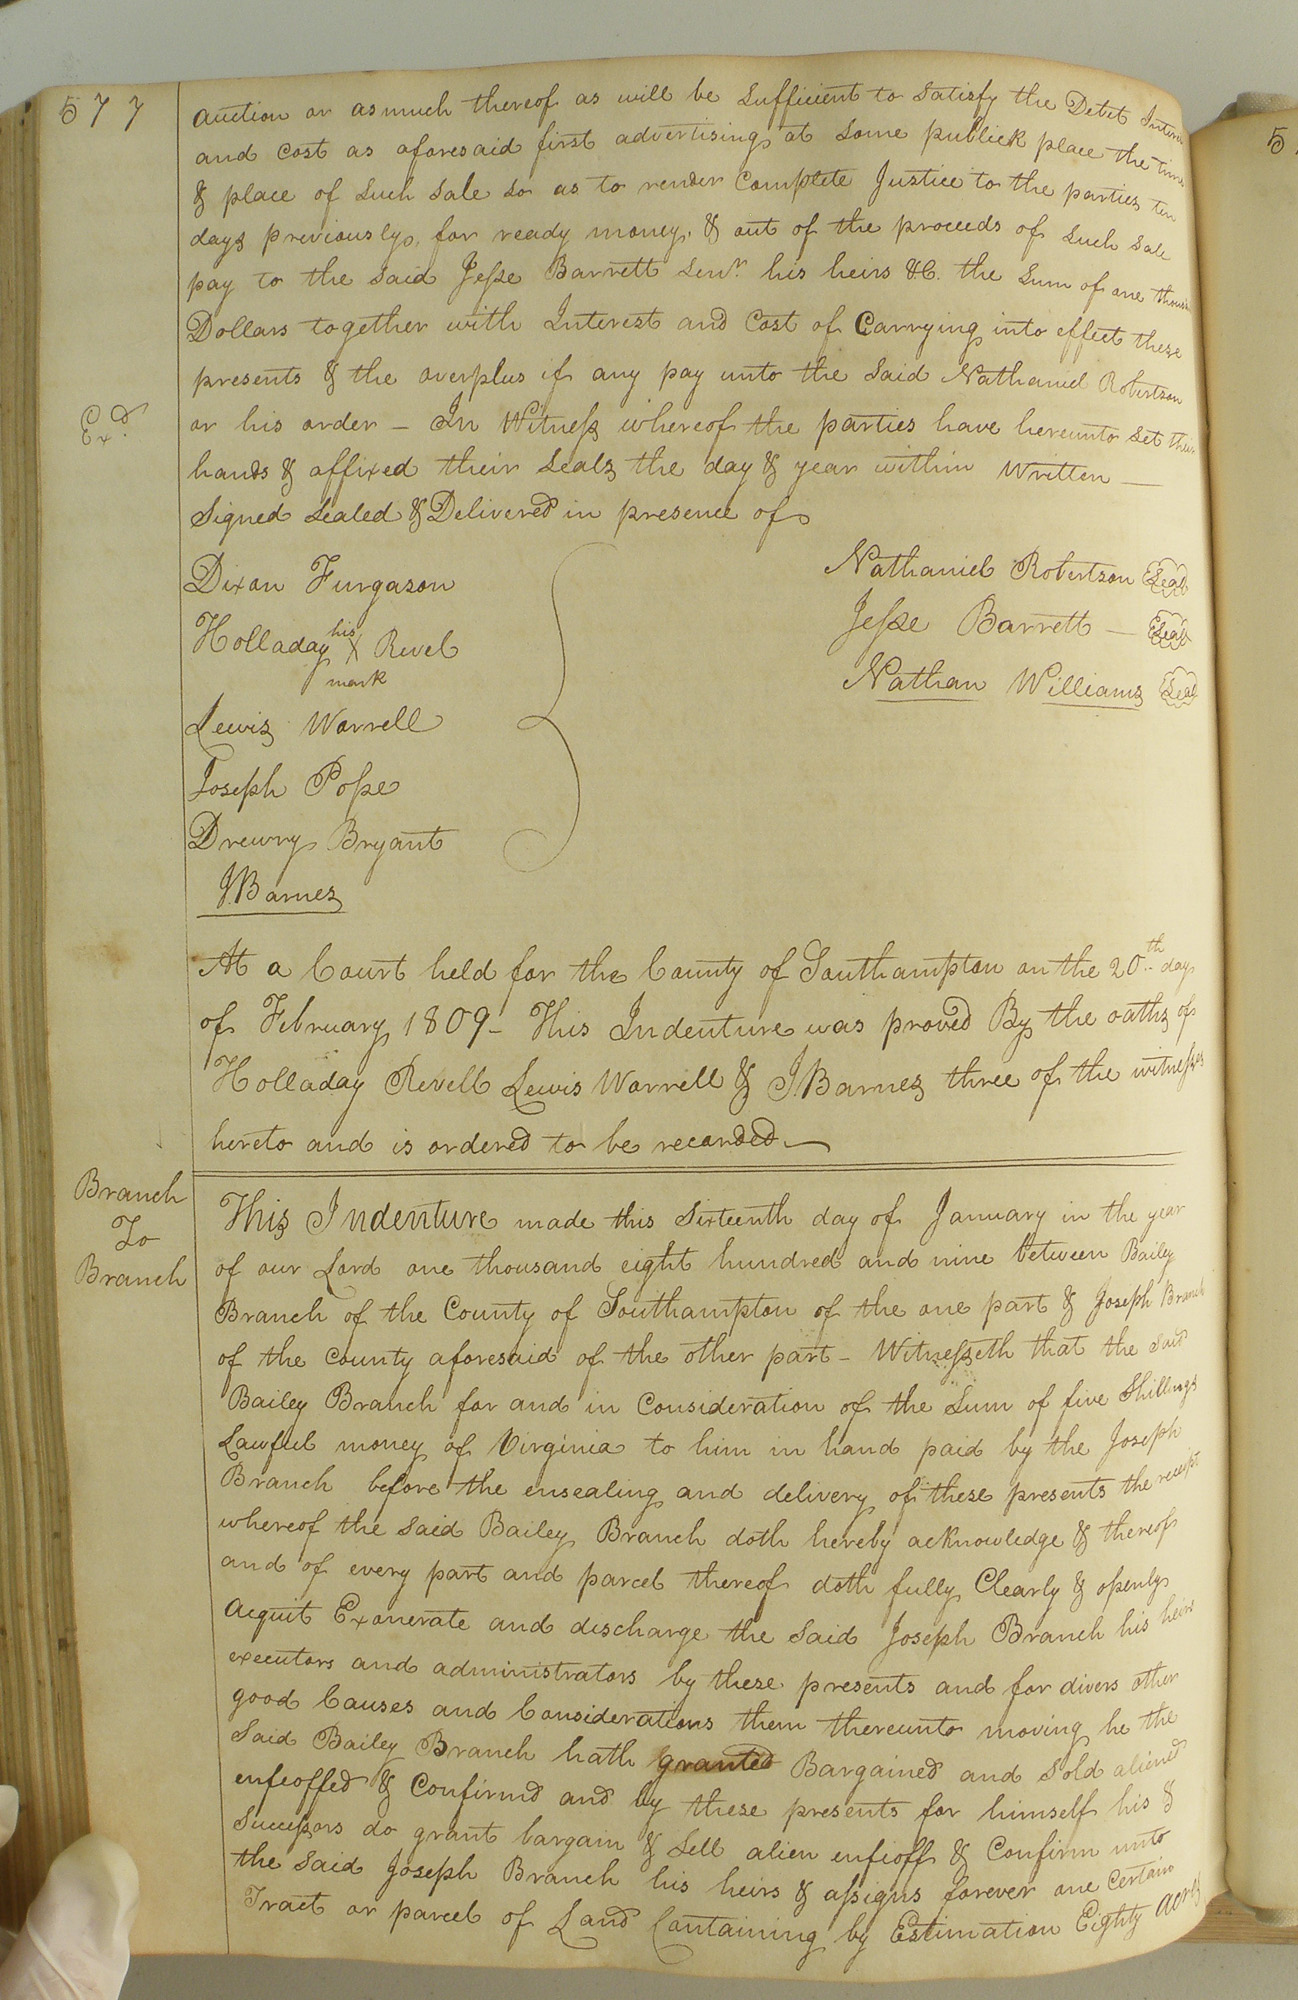 577
auction or as much thereof as will be Sufficient to Satisfy the Debt Interest
and Cost as aforesaid first advertising at Some publick place the time
& place of Such Sale So as to render Complete Justice to the parties ten
days previously, for ready money, & out of the proceeds of Such Sale
pay to the Said Jesse Barrett Senr. his heirs &C. the Sum of one thousand
Dollars together with Interest and Cost of Carrying into effect these
presents & the overplus if any pay unto the Said Nathaniel Robertson
or his order – In Witness whereof the parties have hereunto Set their
Exd.
hands & affixed their Seals the day & year within Written —
Signed Sealed & Delivered in presence of
Dixon Furgason
Holladay his X mark Revel
Lewis Worrell
Joseph Pope
Drewry Bryant
J. Barnes
Nathaniel Robertson Seal
Jesse Barrett — Seal
Nathan Williams Seal
At a Court held for the County of Southampton on the 20th day
of February 1809 – This Indenture was proved By the oaths of
Holladay Revell Lewis Worrell & J. Barnes three of the witnesses
hereto and is ordered to be recorded —
Branch
To
Branch
This Indenture made this Sixteenth day of January in the year
of our Lord one thousand eight hundred and nine between Bailey
Branch of the County of Southampton of the one part & Joseph Branch
of the County aforesaid of the other part – Witnesseth that the Said
Bailey Branch for and in Consideration of the Sum of five Shillings
Lawful money of Virginia to him in hand paid by the Joseph
Branch before the ensealing and delivery of these presents the receipt
whereof the Said Bailey Branch doth hereby acknowledge & thereof
and of every part and parcel thereof doth fully Clearly & openly
acquit Exonerate and discharge the Said Joseph Branch his heirs
executors and administrators by these presents and for divers other
good Causes and Considerations them thereunto moving he the
Said Bailey Branch hath granted Bargained and Sold aliened
enfeoffed & Confirmd and by these presents for himself his &
Successors do grant bargain & Sell alien enfeoff & Confirm unto
the Said Joseph Branch his heirs & assigns forever one Certain
Tract or parcel of Land Containing by Estimation Eighty acres